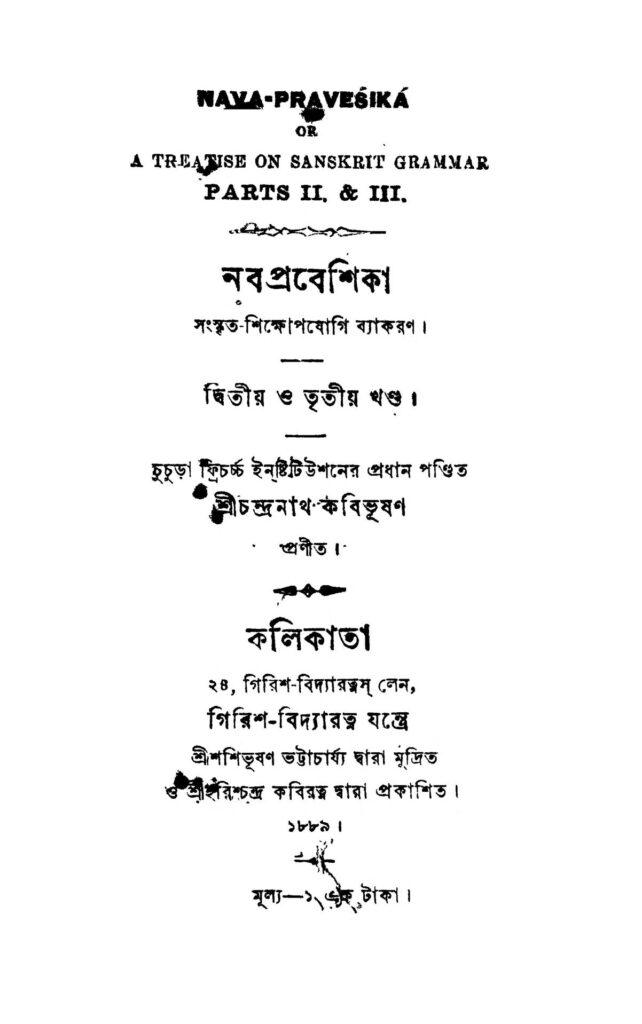 NAVA-PRAVEŚIKÁ
OR
A TREATISE ON SANSKRIT GRAMMAR
PARTS II. & III.
নবপ্রবেশিকা
সংস্কৃত-শিক্ষোপযোগি ব্যাকরণ।
দ্বিতীয় ও তৃতীয় খণ্ড।
চুচুড়া ফ্রিচর্চ্চ ইনষ্টিটিউশনের প্রধান পণ্ডিত
শ্রীচন্দ্রনাথ কবিভূষণ
প্রণীত।
কলিকাতা
২৪, গিরিশ-বিদ্যারত্নস্ লেন,
গিরিশ-বিদ্যারত্ন যন্ত্রে
শ্রীশশিভূষণ ভট্টাচার্য্য দ্বারা মুদ্রিত
ও শ্রীহরিশ্চন্দ্র কবিরত্ন দ্বারা প্রকাশিত।
১৮৮৯।
মূল্য—১৲ এক টাকা।